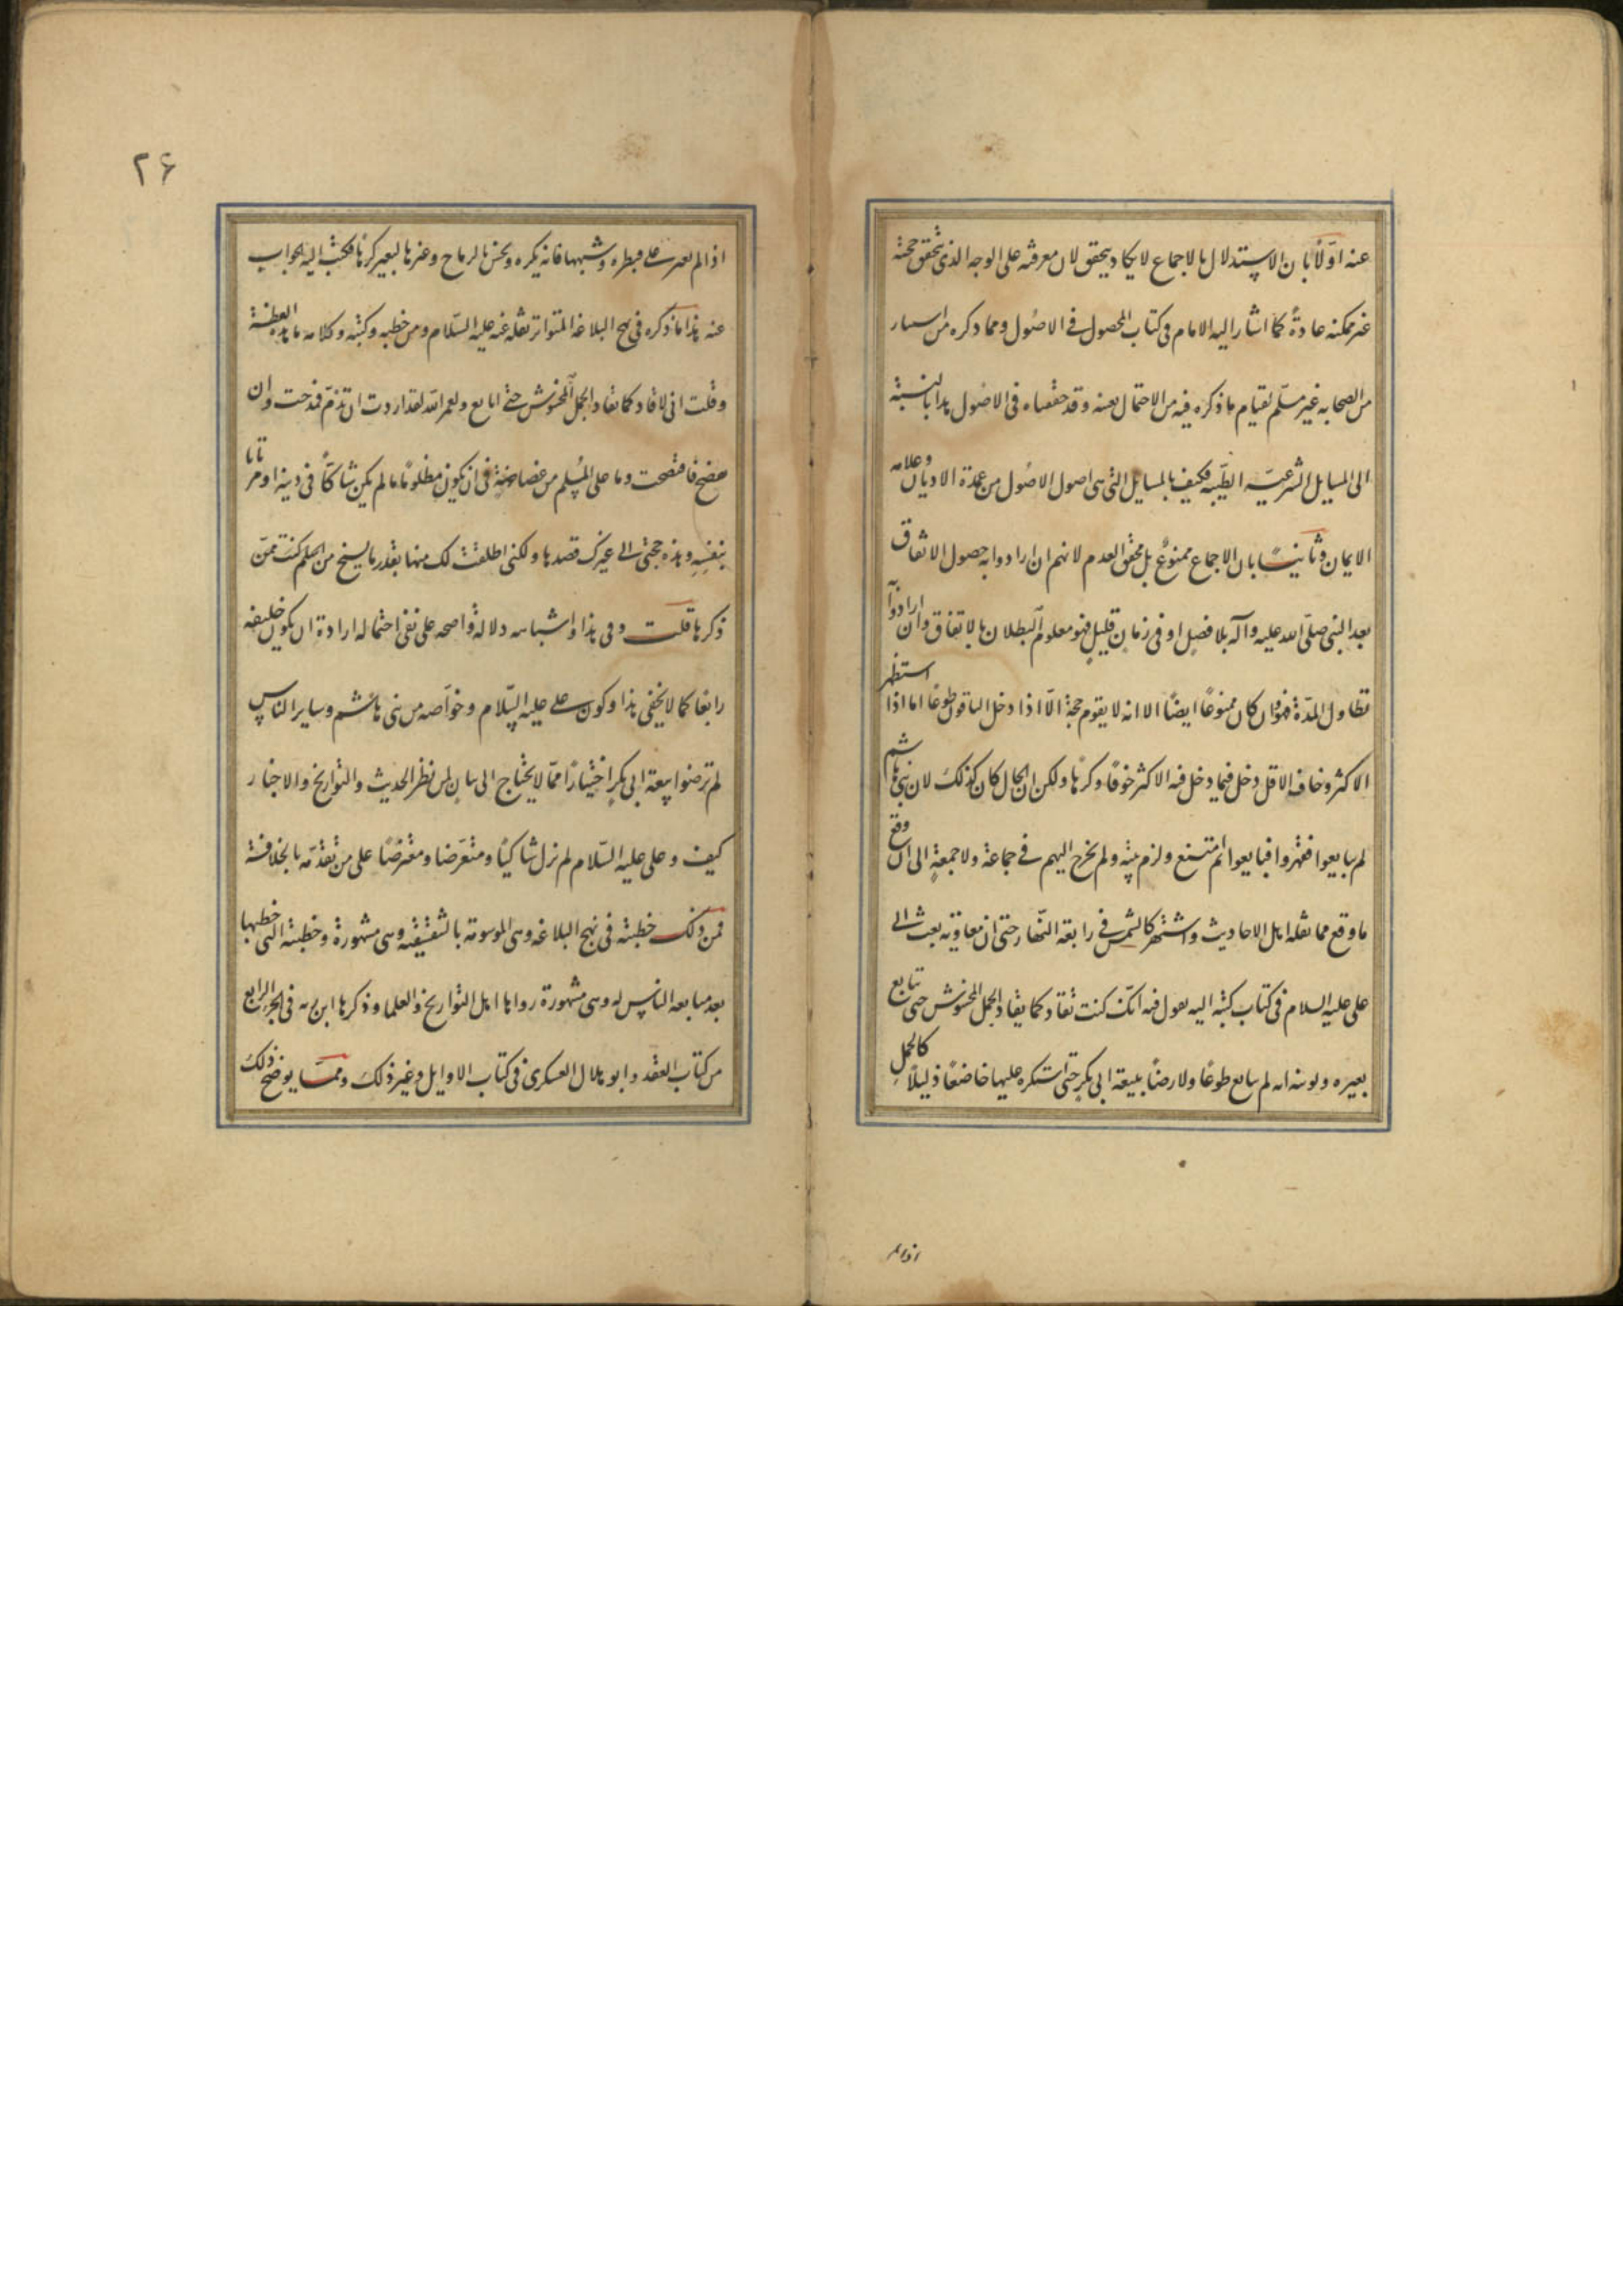 عنه اوّلاً بان الاستدلال بالاجماع لا يكاد يتحقق لان معرفته على الوجه الذى تحقق حجته
غير ممكنه عادةً كما اشار اليه الامام فى كتاب المحصول فى الاصُول ومما ذكره من اسار
من الصحابه غير مسلّم لقيام ما ذكره فيه من الاحتمال بعينه وقد حققناه فى الاصُول هذا بالنسبة
الى المسايل الشرعيّه الظنّيّه فكيف بالمسايل التى هى اصول الاصُول من عمدة الاديان وعلامه
الايمان وثانيًا بان الاجماع ممنوعٌ بل محقق العدم لانهم ان ارادوا به حصول الاتفاق
بعد النبى صلّى الله عليه وآله بلا فصلٍ او فى زمانٍ قليلٍ فهو معلوم البطلان بالاتفاق وان ارادوا به
تطاول المدّة فهو وان كان ممنوعًا ايضًا الا انه لا يقوم حجة الّا اذا دخل الباقون طوعًا اما اذا استظهر
الاكثر وخاف الاقل ودخل فيما دخل فيه الاكثر خوفًا وكرهًا ولكن الحال كان كذلك لان بنى هاشم
لم يبايعوا فقهروا فبايعوا ثم امتنع ولزم بيته ولم يخرج اليهم فى جماعة ولا جمعةٍ الى ان وقع
ما وقع مما نقله اهل الاحاديث واشتهر كالشمس فى رابعة النّهار حتى ان معاوية بعث الى
على عليه السلام فى كتاب كتبه اليه يقول فيه انّك كنت تقاد كما يقاد الجمل المخشوش حتى تبايع
بعيره وبونه انه لم يبايع طوعًا ولا رضًا ببيعة ابى بكرٍ حتى استكره عليها خاضعًا ذليلًا كالجمل
اذا لم
٢۶
اذا لم يعبر على قنطره وشبهها فانه يكره ويخس بالرماح وغيرها ليعبر كرهًا فكتب اليه الجواب
عنه هذا ما ذكره فى نهج البلاغه المتواتر نقله عنه عليه السّلام ومن خطبه وكتبه وكلامه ما هذه لفظته
وقلت انى كنت اقاد كما يقاد الجمل المخشوش حتى ابايع ولعمر الله لقد اردت ان تذمّ فمدحت وان
تفضح فافتضحت وما على المسلم من غضاضةٍ فى ان يكون مظلومًا ما لم يكن شاكًّا فى دينه او مرتابا
بنفسه وهذه حجتى الى غيرك قصدها ولكنى اطلقت لك منها بقدر ما يسنح من
ذكرها قلت وفى هذا واشباهه دلالة واضحه على نفى احتماله ارادة ان يكون خليفه
رابعًا كما لا يخفى هذا وكون على عليه السّلام وخوّاصه من بنى هاشم وساير الناس
لم ترضوا بيعة ابى بكرٍ اختيارًا ممّا لا يحتاج الى بيان لمن نظر الحديث والتواريخ والاخبار
كيف وعلى عليه السّلام لم يزل شاكيًا ومتعرّضا ومعترضًا على من تقدّمه بالخلافة
فمن ذلك خطبته فى نهج البلاغه وهى الموسومة بالشقشقيّه وهى مشهورة وخطبته التى خطبها
بعد مبايعه الناس له وهى مشهورة رواها اهل التواريخ والعلما وذكرها ابن عبد ربه فى الجزء الرابع
من كتاب العقد وابو هلال العسكرى فى كتاب الاوايل وغير ذلك وممّا يوضح ذلك